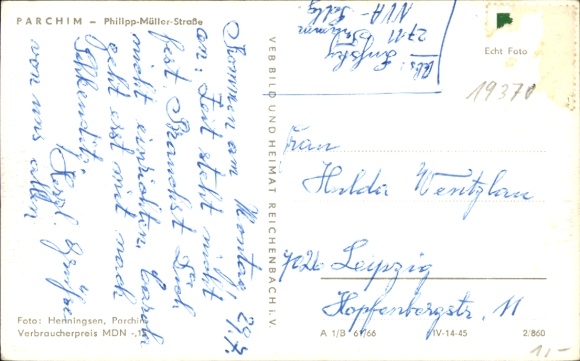 PARCHIM – Philipp-Müller-Straße
Kommen am Montag, 29.7.
an: Zeit steht nicht
fest. Brauchst Dich
nicht einrichten.
geht erst mit nach
Schkeuditz.
Herzl. Grüße
von uns allen
Foto: Henningsen, Parchim
Verbraucherpreis MDN -,15
VEB BILD UND HEIMAT REICHENBACH i. V.
Abs:
2711
NVA-
Echt Foto
19370
Frau
Hulda Wentzlau
7026 Leipzig
Hopfenbergstr. 11
A 1/B 61/66 IV-14-45 2/860
1,-